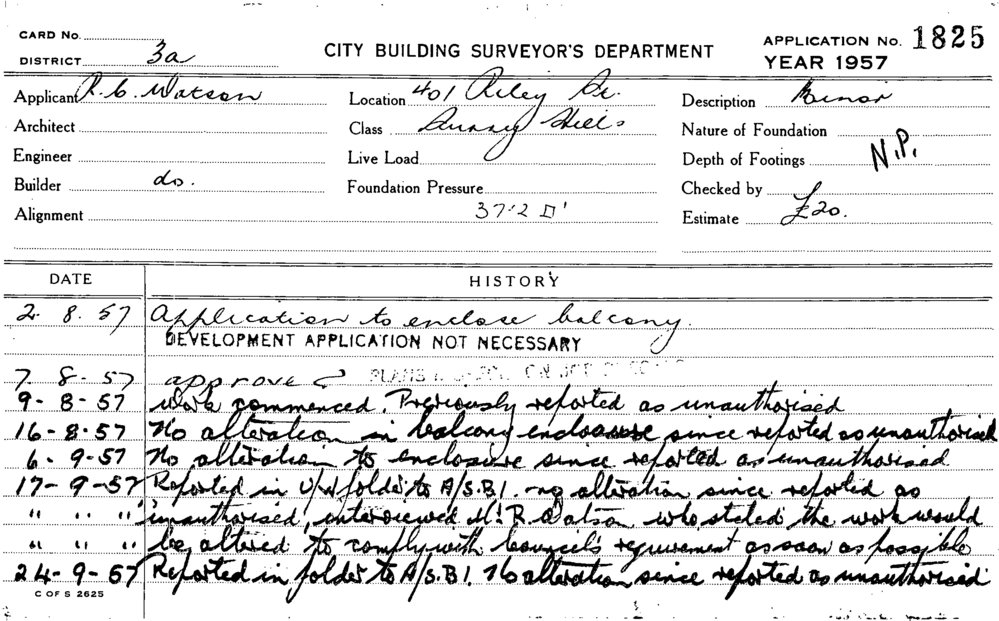 CARD No.
DISTRICT 3a
CITY BUILDING SURVEYOR'S DEPARTMENT
APPLICATION No. 1825
YEAR 1957
Applicant R. C. Watson
Location 401 Riley St.
Description Minor
Architect
Class Surry Hills
Nature of Foundation
Engineer
Live Load
Depth of Footings N.P.
Builder do.
Foundation Pressure
Checked by
Alignment
37.2 □'
Estimate £20.
DATE
HISTORY
2. 8. 57 Application to enclose balcony.
DEVELOPMENT APPLICATION NOT NECESSARY
7. 8. 57 approved PLANS
9 - 8 - 57 Work commenced. Previously reported as unauthorised
16 - 8 - 57 No alteration in balcony enclosure since reported as unauthorised
6 - 9 - 57 No alteration to enclosure since reported as unauthorised
17 - 9 - 57 Reported in folder to A/S.B.I. no alteration since reported as
" " " unauthorised, interviewed Mr. R. Watson who stated the work would
" " " be altered to comply with Council's requirement as soon as possible
24 - 9 - 57 Reported in folder to A/S.B.I. No alteration since reported as unauthorised
C OF S 2625